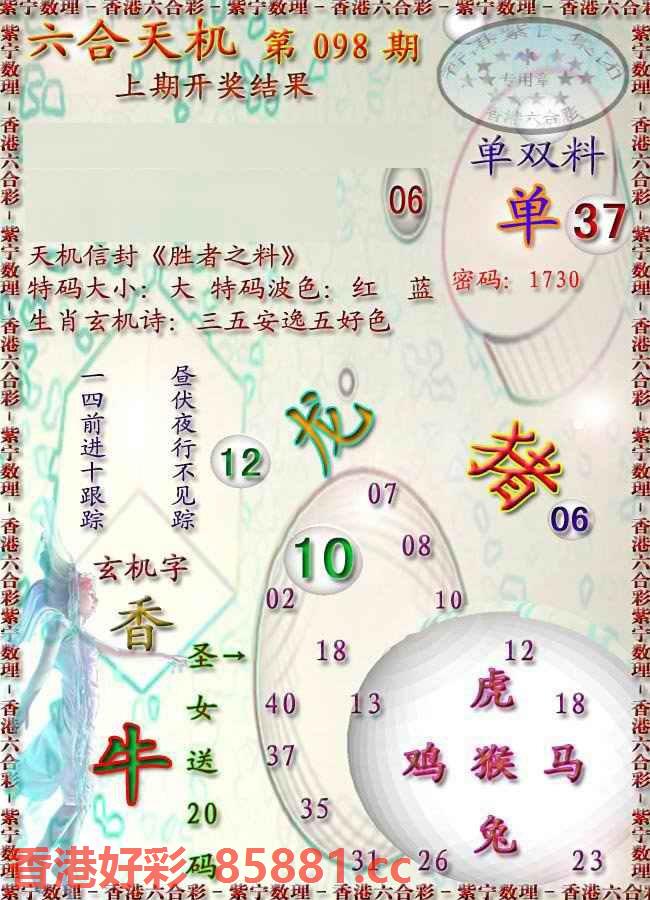 紫宁数理－香港六合彩－紫宁数理－香港六合彩－紫宁数理－香港六合彩
六合天机 第 098 期
上期开奖结果
香港紫氏集团
专用章
香港六合彩
单双料
06
单 37
天机信封《胜者之料》
特码大小：大 特码波色：红 蓝
密码：1730
生肖玄机诗：三五安逸五好色
一四前进十跟踪
昼伏夜行不见踪
12
龙
猪
06
07
10
08
02
10
玄机字
香
18
12
圣→
女
送
20
码
40
13
虎
18
牛
37
鸡 猴 马
35
兔
31
26
23
香港好彩 85881.cc
紫宁数理－香港六合彩－紫宁数理－香港六合彩－紫宁数理